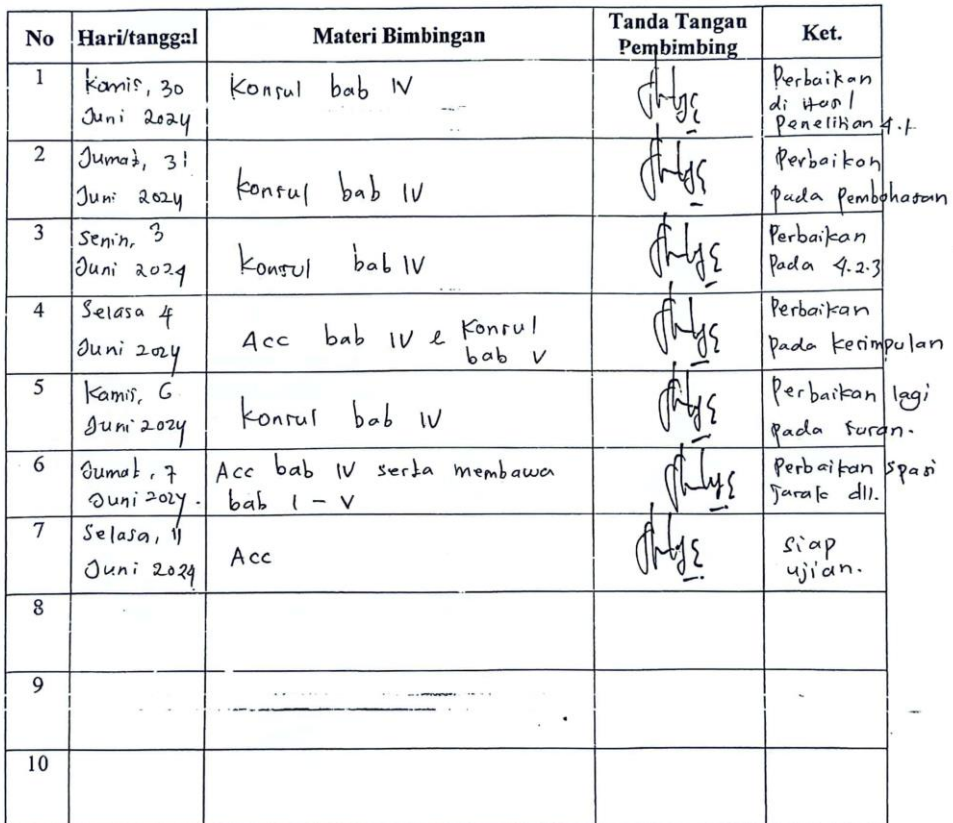 No Hari/tanggal Materi Bimbingan Tanda Tangan Pembimbing Ket.
1 Kamis, 30 Juni 2024 Konsul bab IV Perbaikan di Hasil Penelitian 4.1
2 Jumat, 31 Juni 2024 konsul bab IV Perbaikan pada Pembahasan
3 Senin, 3 Juni 2024 Konsul bab IV Perbaikan Pada 4.2.3
4 Selasa 4 Juni 2024 Acc bab IV & Konsul bab V Perbaikan pada kesimpulan
5 Kamis, 6 Juni 2024 konsul bab IV Perbaikan lagi pada saran.
6 Jumat, 7 Juni 2024. Acc bab IV serta membawa bab I - V Perbaikan spasi Jarak dll.
7 Selasa, 11 Juni 2024 Acc Siap ujian.
8
9
10